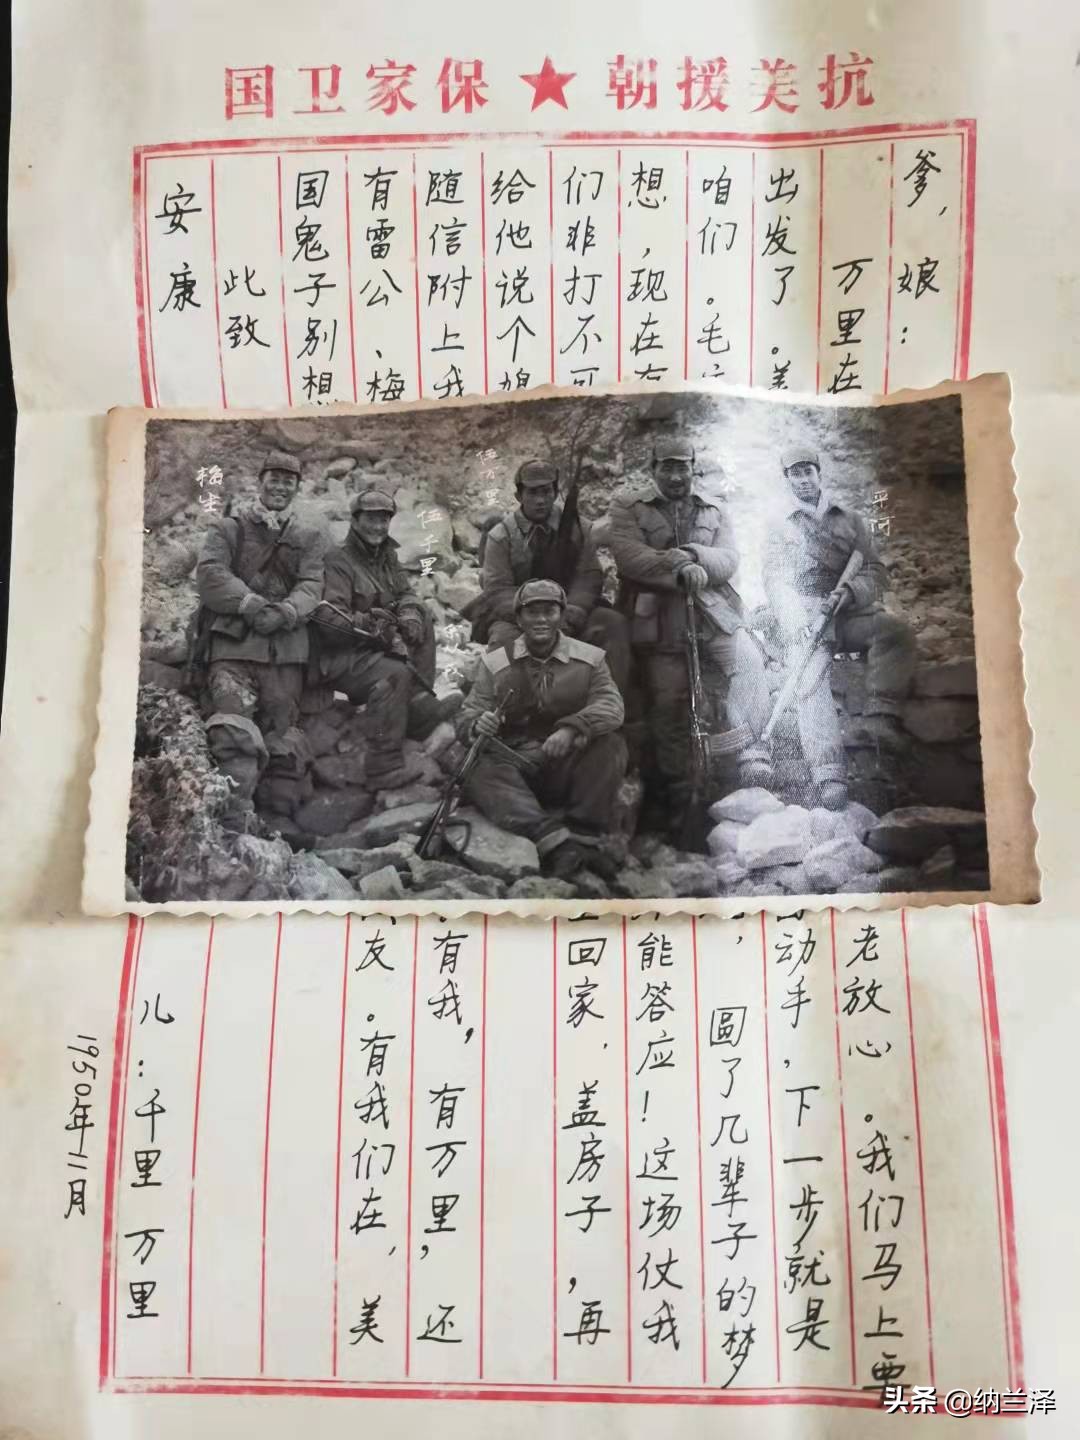 抗美援朝★保家卫国
爹,娘:
万里在 老放心。我们马上要
出发了。美 动手,下一步就是
咱们。毛 , 圆了几辈子的梦
想,现在 能答应!这场仗我
们非打不可 回家.盖房子,再
给他说个媳
随信附上我 。有我,有万里,还
有雷公、梅 友。有我们在,美
国鬼子别想
此致
安康
儿:千里 万里
1950年11月
梅生
伍千里
伍万里
平河
头条 @纳兰泽